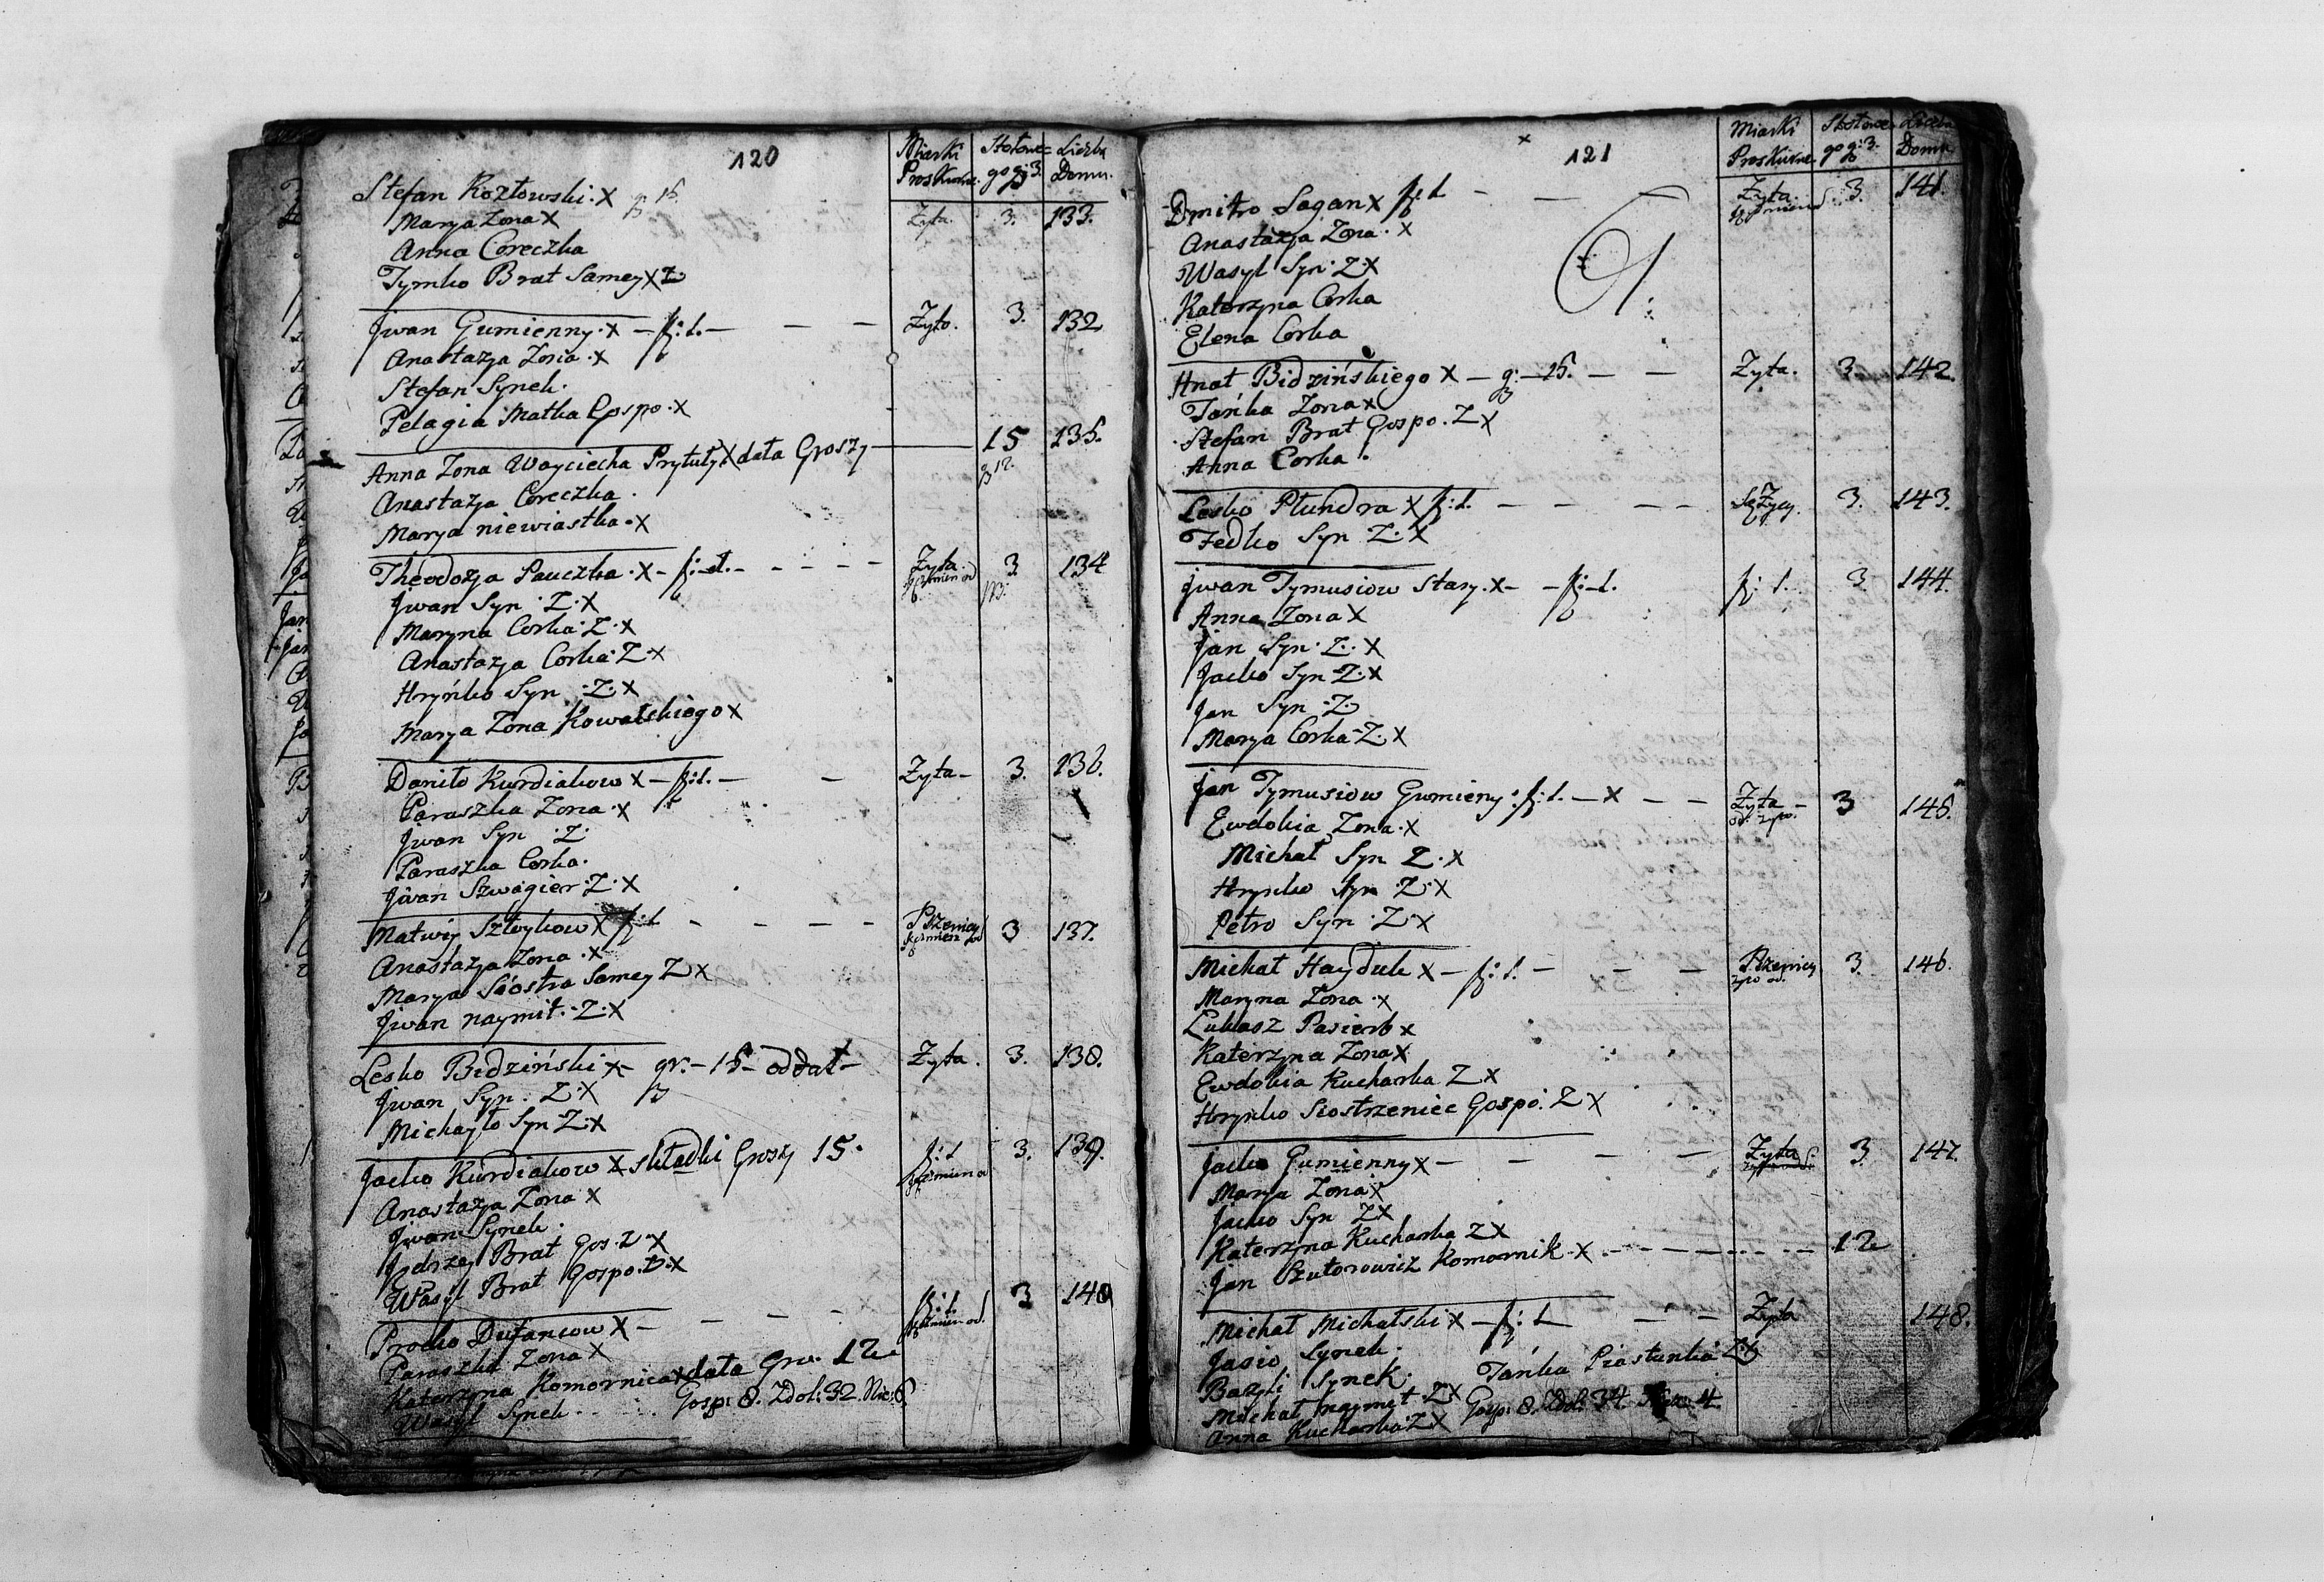 120
Miarki Stołowe- Liczba
Proskurne. go g: 3. Domu.
Stefan Kozłowski. X g 15 Zyta. 3. 133.
Marya Zona X
Anna Coreczka
Tymko Brat Samey X Z
Jwan Gumienny. X — f: 1. — — — Zyto. 3. 132
Anastazya Zona. X
Stefan Synek.
Pelagia Matka Gospo. X
Anna Zona Woyciecha Prytuły X data Groszy 15 135.
g 12.
Anastazya Coreczka.
Marya niewiastka. X
Theodozya Sauczka. X — f: 1. - - - - - Zyta. 3. 134
Jwan Syn Z. X
Maryna Corka Z. X
Anastazya Corka Z. X
Hryńko Syn Z. X
Marya Zona Kowalskiego X
Daniło Kurdiakow X — f: 1. — — Zyta — 3. 136.
Paraszka Zona. X
Jwan Syn Z.
Paraszka Corka.
Jwan Szwagier Z. X
Matwiy Sztoykow X f: 1 - - - - - Przenicy 3 137.
Anastazya Zona. X
Marya Siostra Samey Z X
Jwan naymit. Z. X
Lesko Bidziński X — gr. — 15 — oddał — Zyta. 3. 138.
Jwan Syn. Z. X
Michayło Syn Z. X
Jacko Kurdiakow X składki Groszy 15. f: 1 3. 139.
Anastazya Zona X
Jwan Synek.
Jędrzey Brat Gos. Z. X
Wasyl Brat Gospo. Z. X
Procko Dutancow X — — — — f: 1. 3 140
Paraszka Zona X
Katerzyna Komornica X data Gro. 12
Wasyl Synek. Gosp: 8. Zdol: 32. Nie: 6.
121
Miarki Stołowe Liczba
Proskurne. go g: 3. Domu
Dmitro Sagan X f: 1 — — Zyta. 3. 141.
Anastazya Zona. X
Wasyl Syn. Z. X
Katerzyna Corka
Elena Corka
Hnat Bidzińskiego X — g: — 15. — — Zyta. 3. 142.
Tańka Zona X
Stefan Brat Gospo. Z X
Anna Corka.
Lesko Plundra X f: 1. — — — — 3. 143.
Fedko Syn Z. X
Jwan Tymusiow Stary. X — — f: 1. f: 1. 3 144.
Anna Zona X
Jan Syn. Z. X
Jacko Syn Z. X
Jan Syn Z
Marya Corka Z. X
Jan Tymusiow Gumieny: f: 1. — X — — Zyta — 3 145.
Ewdokia Zona. X
Michał Syn Z. X
Hrynko Syn Z. X
Petro Syn Z. X
Michał Hayduk X — f: 1. — — — Przenicy 3. 146.
Maryna Zona. X
Lukasz Pasierb X
Katerzyna Zona X
Ewdokia Kucharka Z X
Hrynko Siostrzeniec Gospo. Z X
Jacko Gumienny X — — — — Zyta 3. 147.
Marya Zona X
Jacko Syn Z X
Katerzyna Kucharka Z X
Jan Szutorowicz Komornik. X - - - - - - - 12
Michał Michalski X — f: 1 — — Zyta 148.
Jasio Synek.
Bazyli Synek. Tańka Piastunka Z X
Michał naymit Z X Gosp: 8. Zdol: 34. 4.
Anna Kucharka Z X